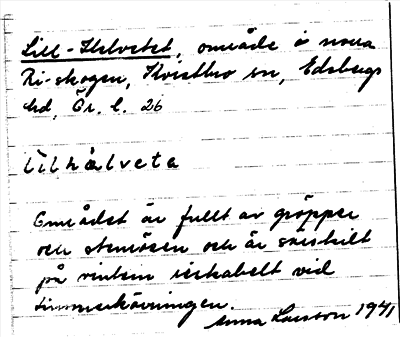 Lill-Helvetet, område å norra
Kilskogen, Kvistbro sn, Edsbergs
hd, Ör. l. 26
lilhälveta
Området är fullt av gröpper
och stenrösen och är särskilt
på vintern riskabelt vid
timmerkörningen.
Anna Larsson 1941